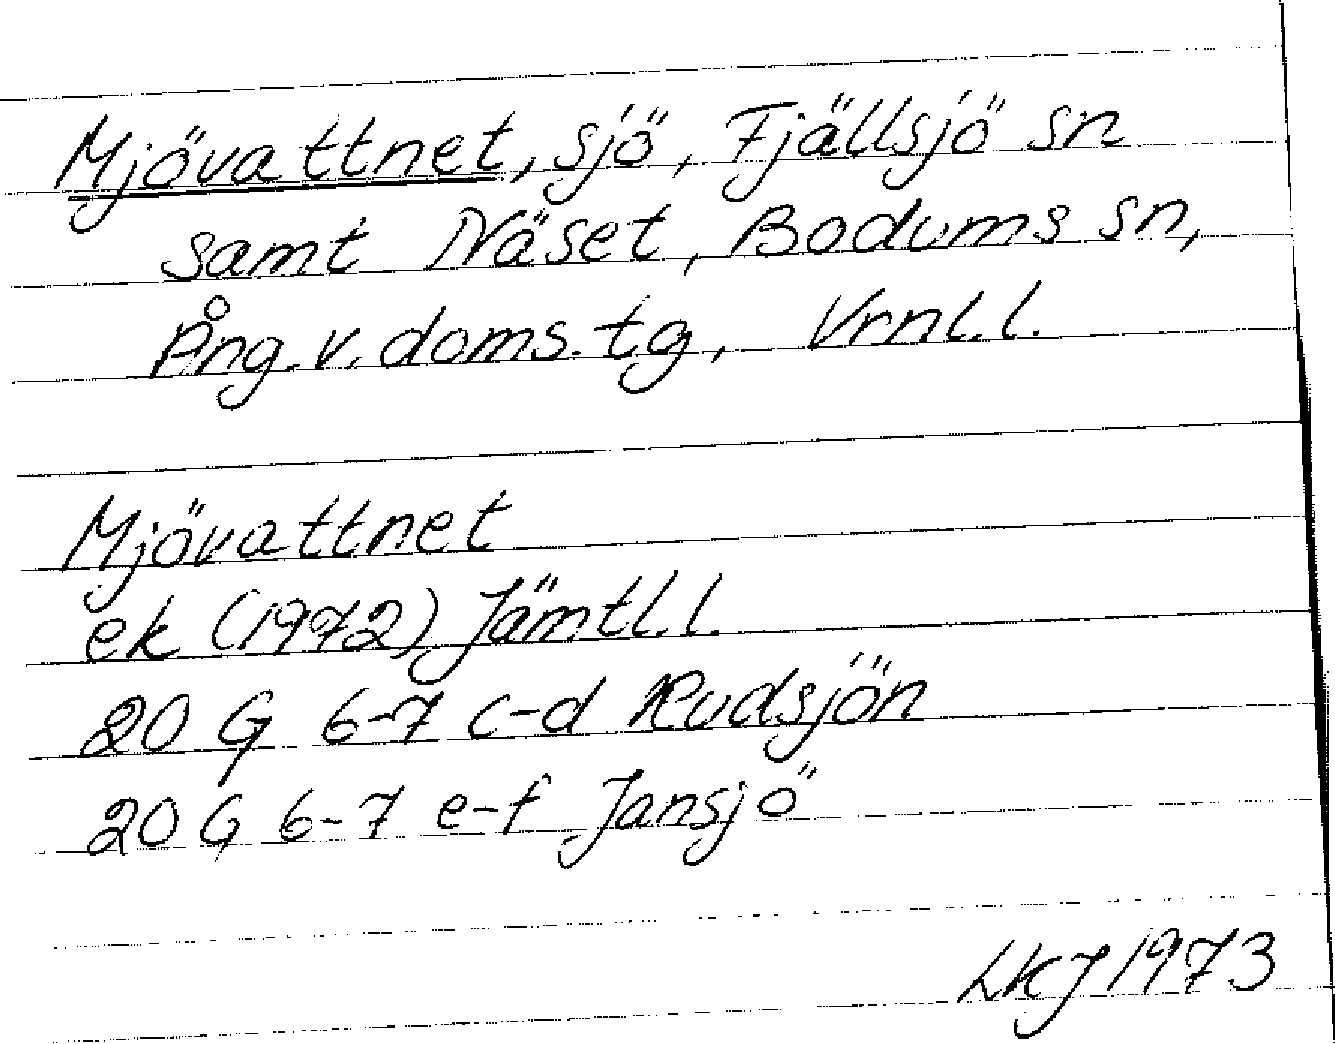 Mjövattnet, sjö, Fjällsjö sn
samt Näset, Bodums sn,
Ång. v. doms. tg, Vrnl. l.
Mjövattnet
ek (1972) Jämtl. l.
20 G 6-7 c-d Rudsjön
20 G 6-7 e-f Jansjö
LKJ 1973